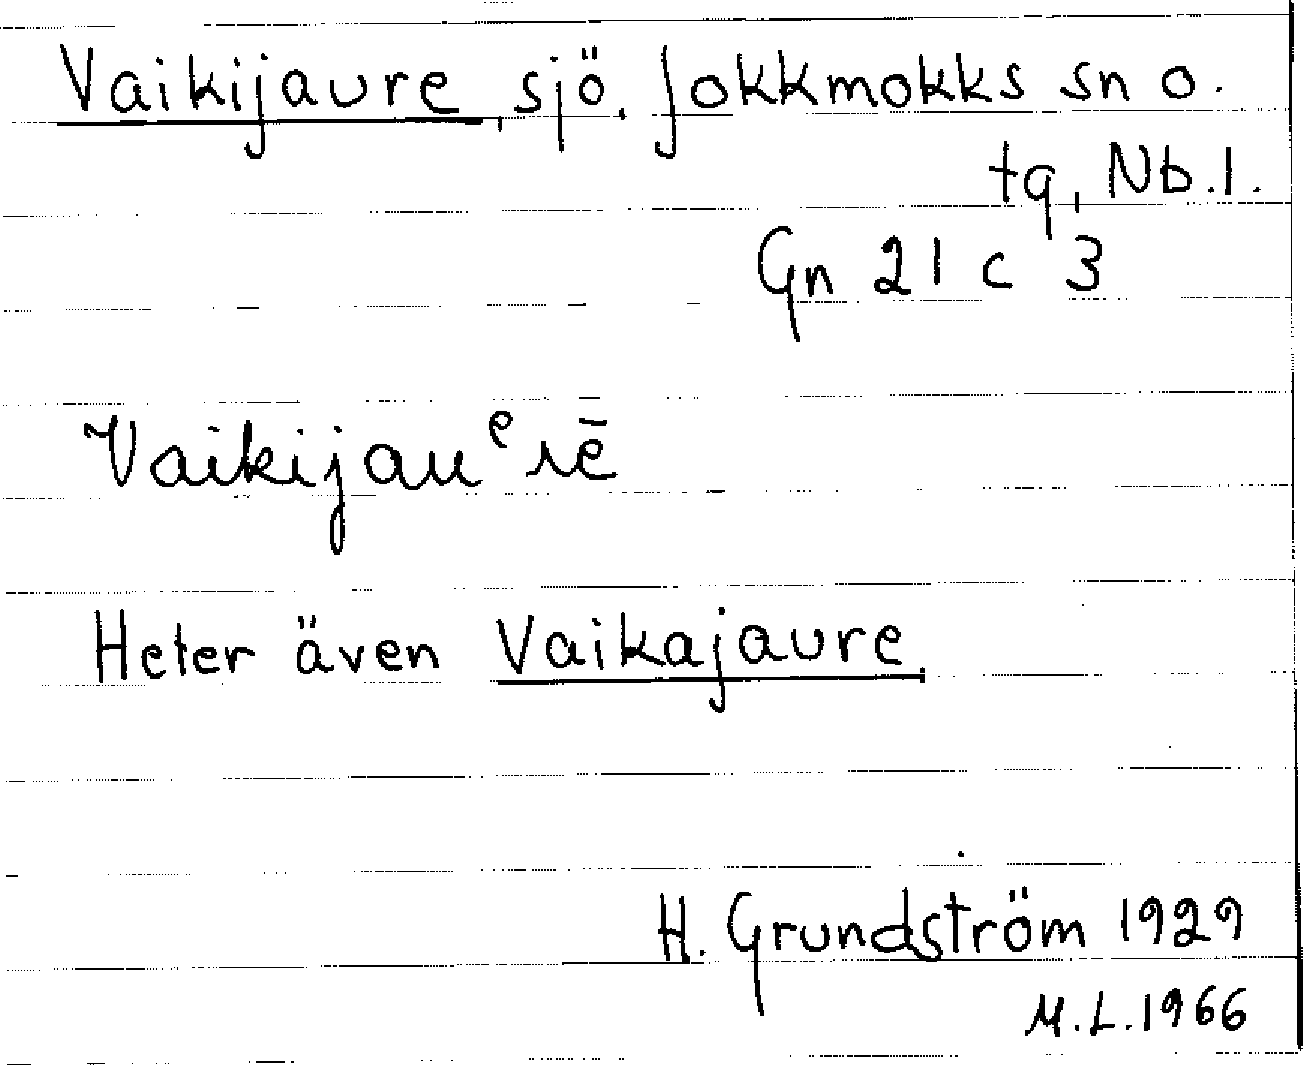 Vaikijaure, sjö. Jokkmokks sn o.
tg, Nb.l.
Gn 21 c 3
Vaikijauᵉrē
Heter även Vaikajaure.
H. Grundström 1929
M.L.1966